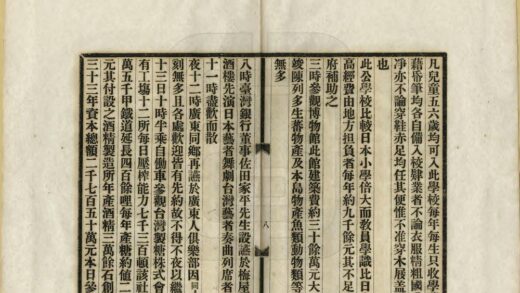 凡兒童五六歲均可入此學校每年每生只收學
藉昏筆均各自備入校肄業者不論衣服精粗國
净亦不論穿鞋赤足均任其便惟不准穿木屐盖
也
此公學校比較日本小學倍大而教員學識比日
高經費由地方担負者每年約九千餘元其不足
府補助之
三時參觀博物館此館建築費約三十餘萬元大
竣陳列多生番物產及本島物產魚類動物類等
無多
八
八時臺灣銀行董事佐田家平先生設讌於梅屋
酒樓先演日本藝者舞劇台灣藝者奏曲列席者
十一時盡歡而散
夜十二時廣東同鄉再讌於廣東人俱樂部因同
刻無多且各處歡迎皆有先約故不得不夜以繼
十三日十時半乘自働車參觀台灣製糖株式會
有工塲十二所每日壓榨能力七千三百頓該社
萬五千甲鐵道延長四百餘哩每年產糖約值二
元其付設之酒精製造所年產酒精三萬餘石創
三十三年資本總額二千七百五十萬元本日參